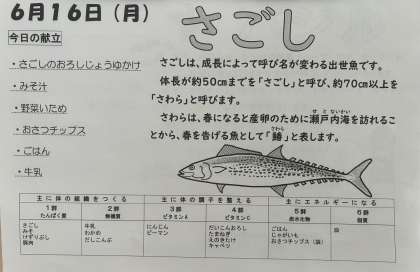 6月16日（月）
さごし
今日の献立
・さごしのおろしじょうゆかけ
・みそ汁
・野菜いため
・おさつチップス
・ごはん
・牛乳
さごしは、成長によって呼び名が変わる出世魚です。
体長が約50㎝までを「さごし」と呼び、約70㎝以上を
「さわら」と呼びます。
さわらは、春になると産卵のために瀬戸内海を訪れるこ
とから、春を告げる魚として「鰆」と表します。
主に体の組織をつくる 主に体の調子を整える 主にエネルギーになる
1群 2群 3群 4群 5群 6群
たんぱく質 無機質 ビタミンA ビタミンC 炭水化物 脂質
さごし 牛乳 にんじん だいこんおろし ごはん 油
みそ わかめ ピーマン たまねぎ じゃがいも
けずりぶし だしこんぶ えのきたけ おさつチップス（袋）
豚肉 キャベツ